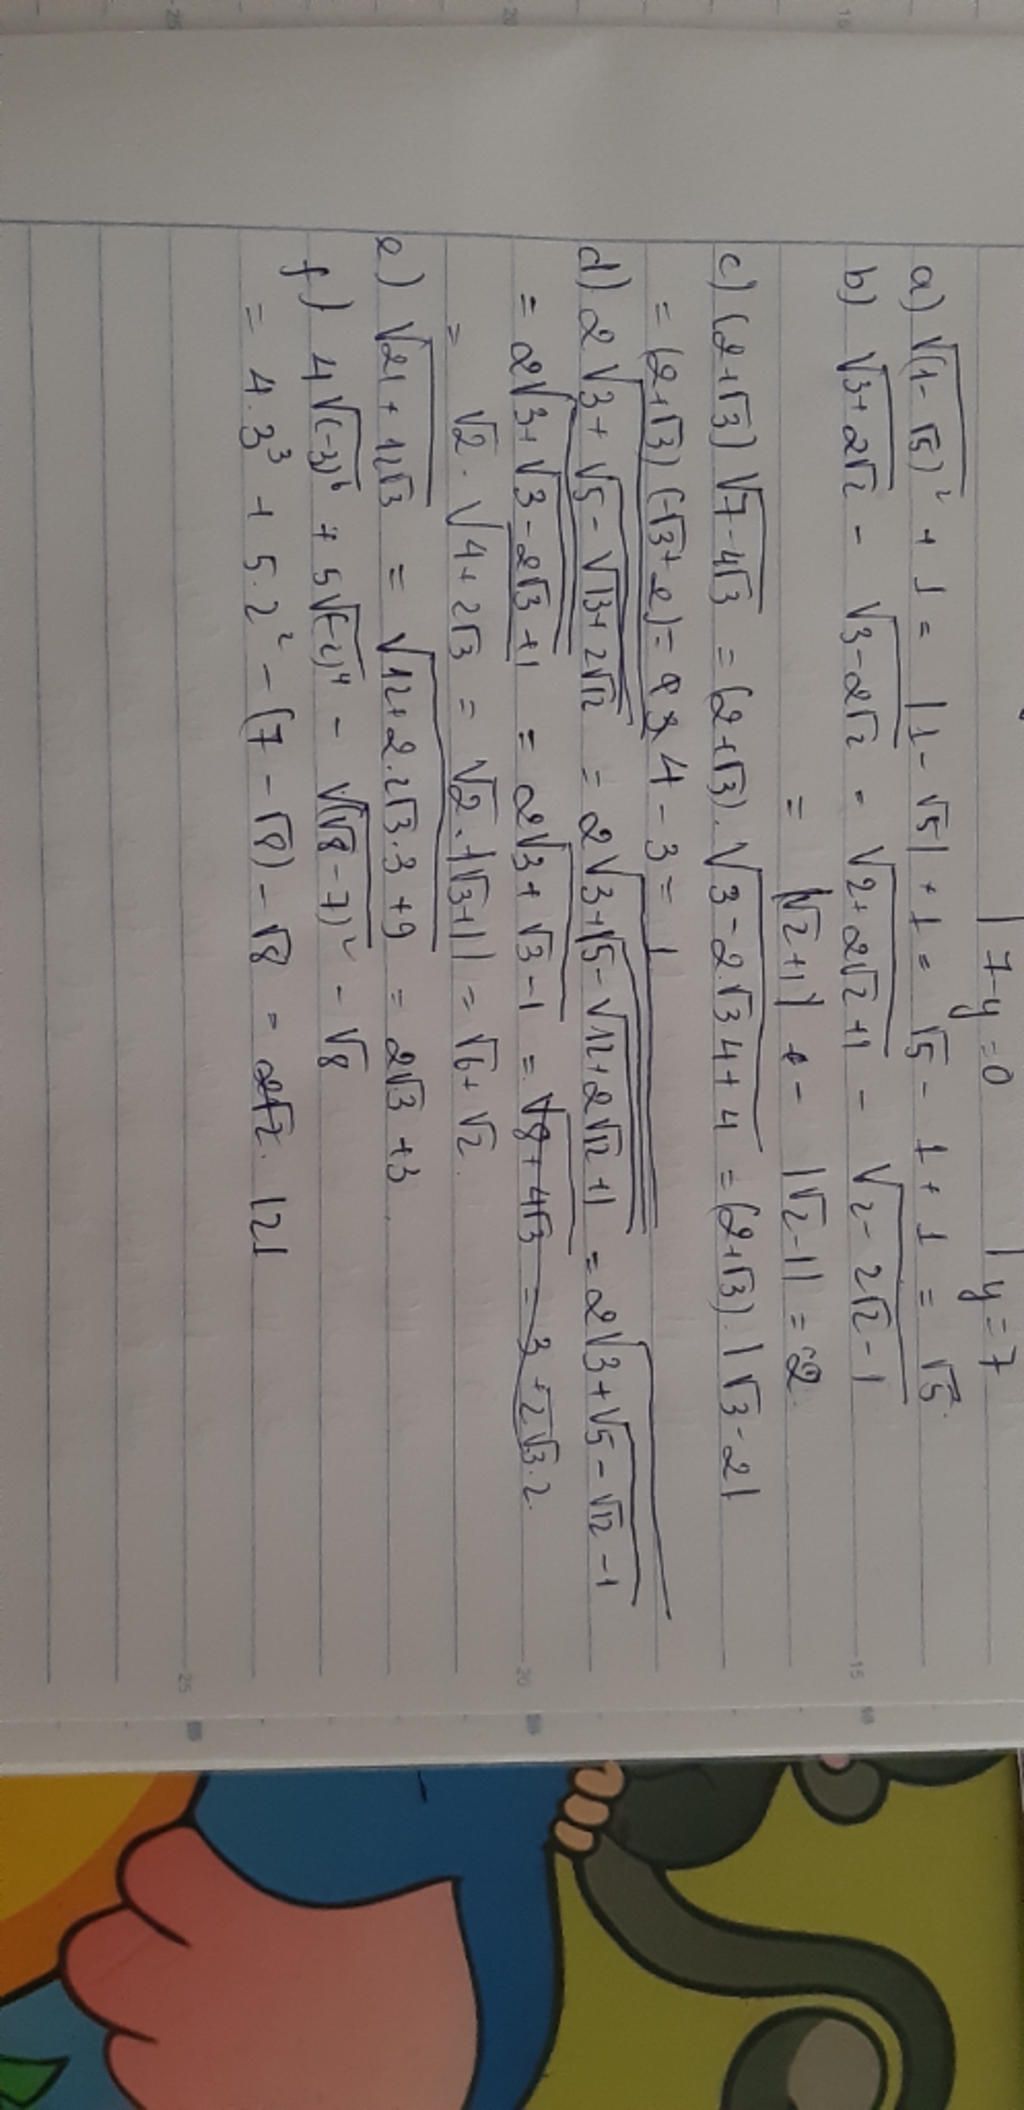 7-y=0 | y=7
a) √(1-√5)² + 1 = |1-√5| + 1 = √5 - 1 + 1 = √5.
b) √3+2√2 - √3-2√2 = √2+2√2+1 - √2-2√2-1
= |√2+1| - |√2-1| = 2
c) (2+√3) √7-4√3 = (2+√3).√3-2.√3 4+4 = (2+√3).|√3-2|
= (2+√3)(-√3+2) = 4-3 = 1
d) 2√3+√5-√13+2√12 = 2√3+√5-√12+2√12+1 = 2√3+√5-√12-1
= 2√3+√3-2√3+1 = 2√3+√3-1 = √8+4√3 = 3+2√3.2.
= √2.√4+2√3 = √2.|√3+1| = √6+√2.
e) √21+12√3 = √12+2.2√3.3+9 = 2√3+3
f) 4√(-3)⁶ + 5√(-2)⁴ - √(√8-7)² - √8
= 4.3³ + 5.2² - (7-√8) - √8 = 121